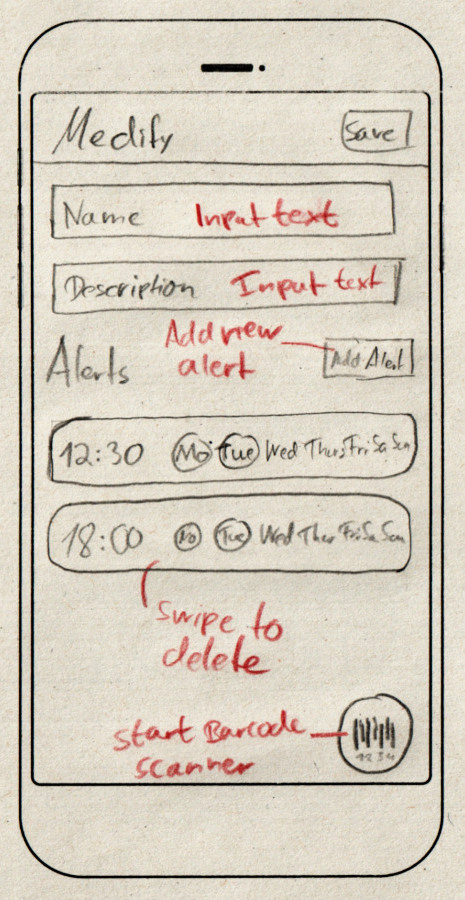 Medify Save
Name Input text
Description Input text
Add new
alert
Alerts Add Alert
12:30 Mo Tue Wed Thurs Fri Sa Sun
18:00 Mo Tue Wed Thur Fri Sa Sun
swipe to
delete
start Barcode
scanner
12 34